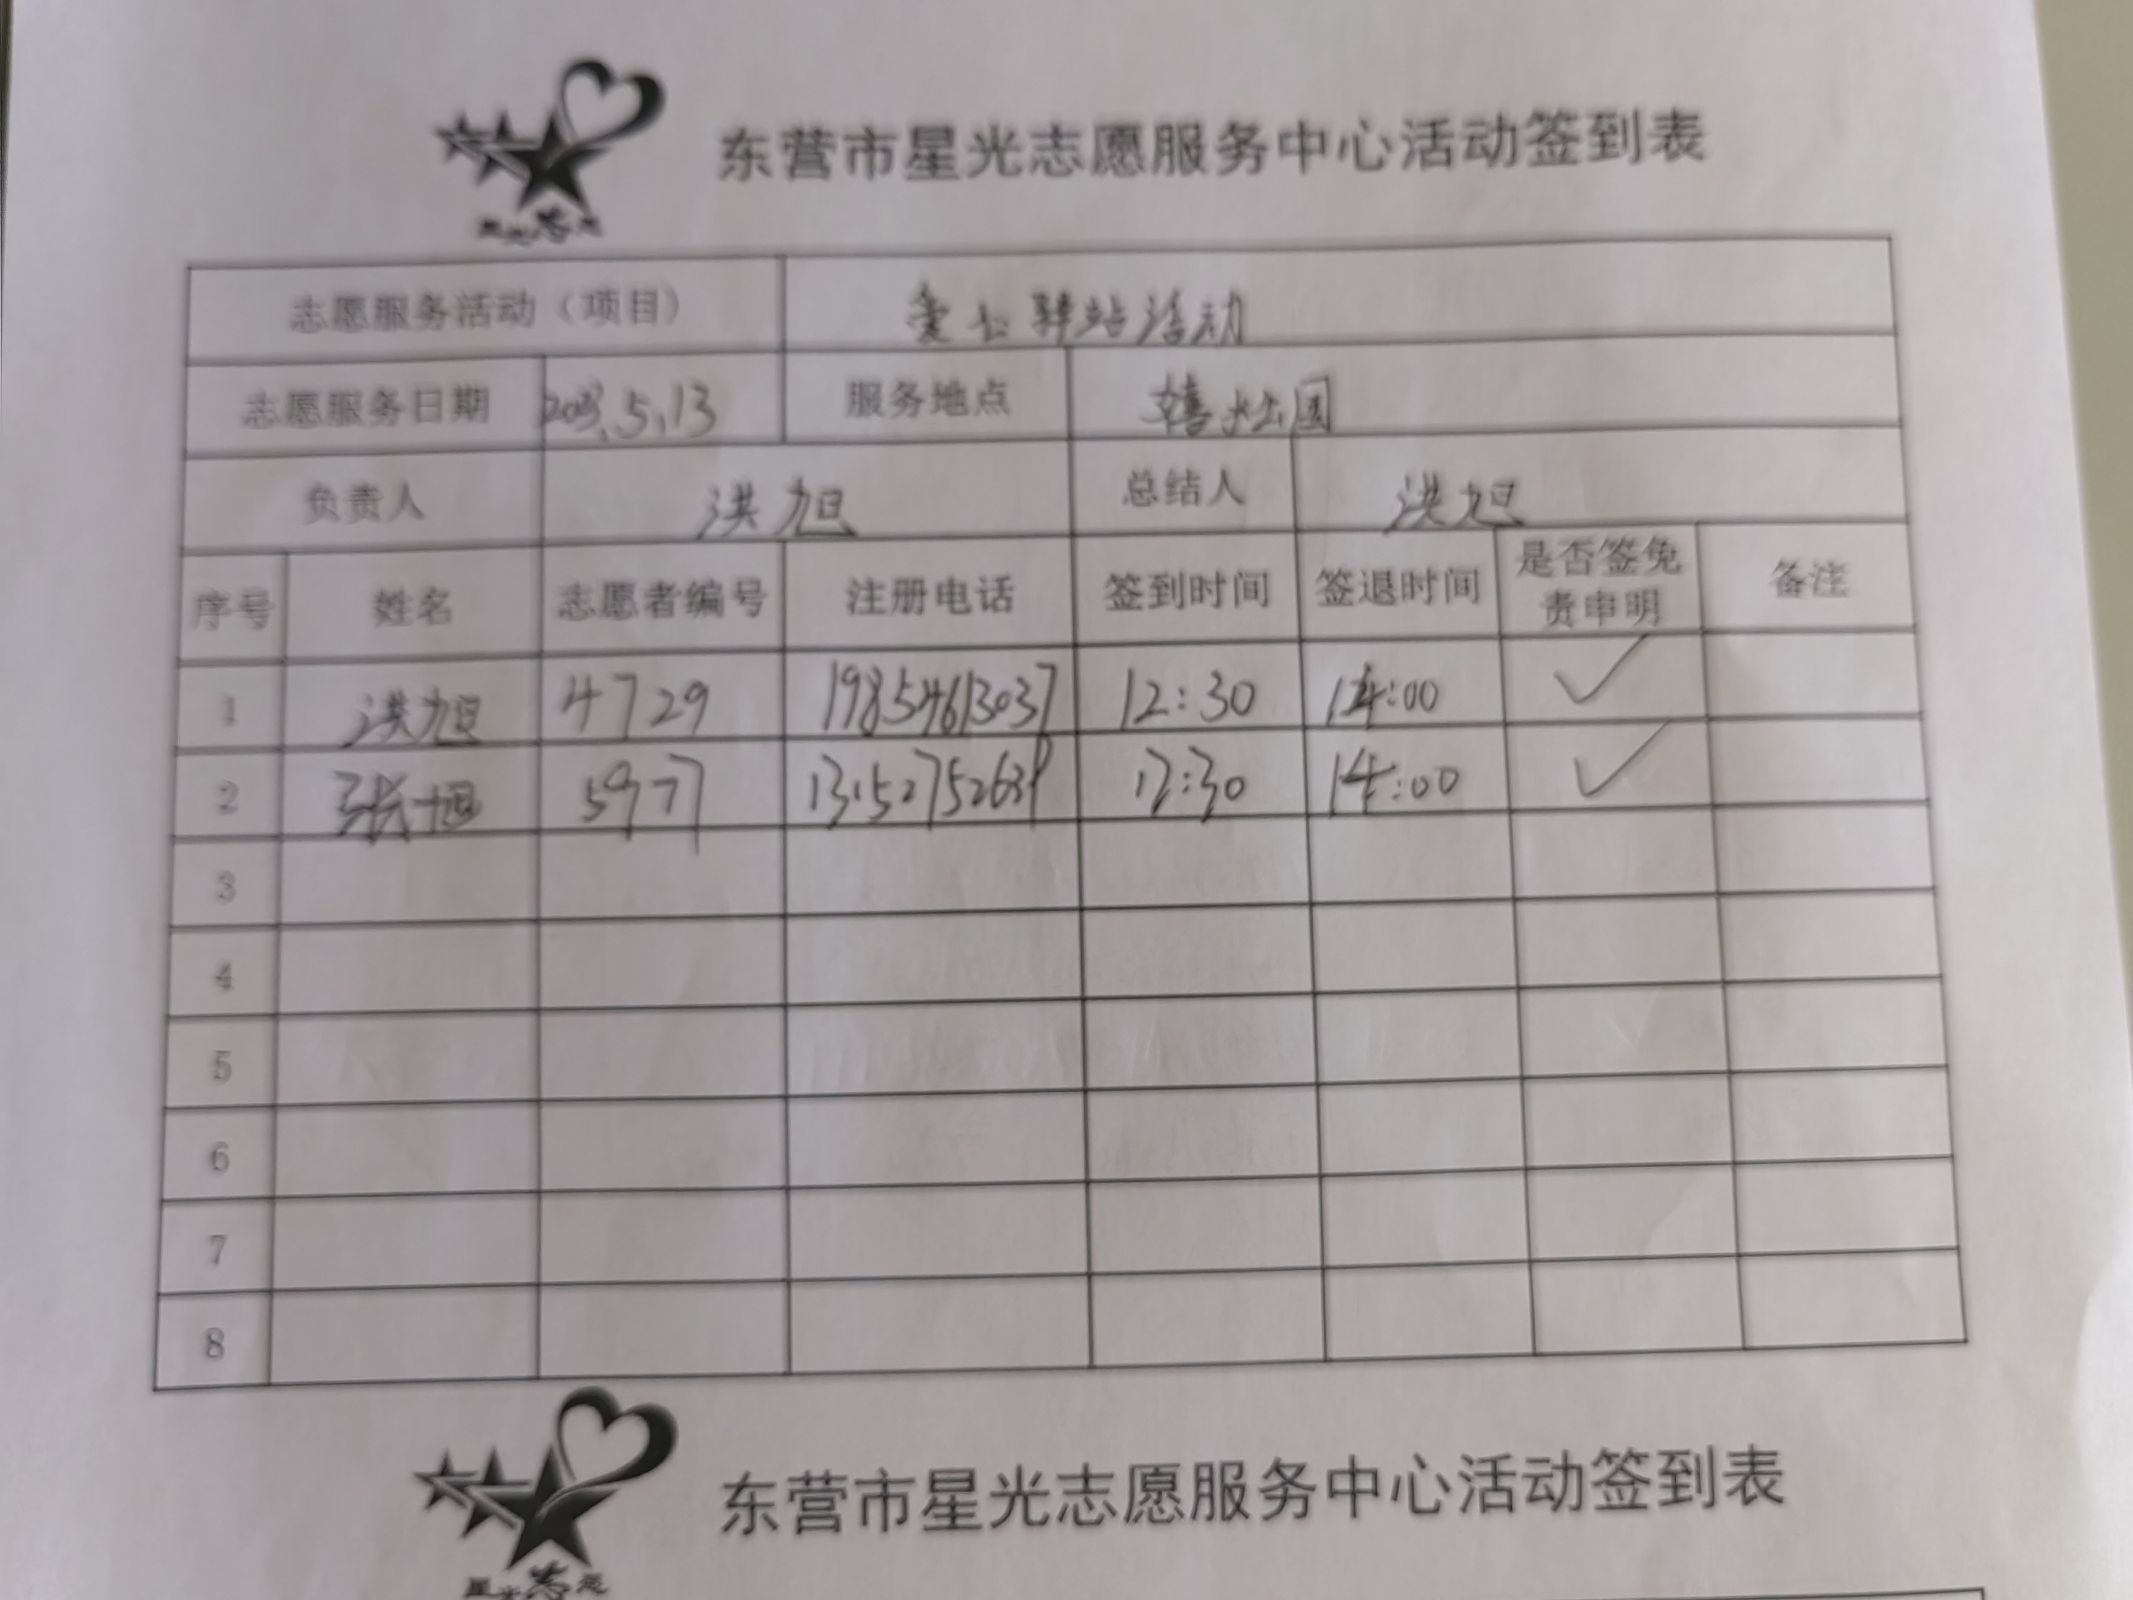 东营市星光志愿服务中心活动签到表
星光志愿
志愿服务活动（项目） 爱心驿站活动
志愿服务日期 2023.5.13 服务地点
负责人 洪旭 总结人 洪旭
序号 姓名 志愿者编号 注册电话 签到时间 签退时间 是否签免责申明 备注
1 洪旭 4729 19854613037 12:30 14:00 ✓
2 5977 12:30 14:00 ✓
3
4
5
6
7
8
东营市星光志愿服务中心活动签到表
星光志愿